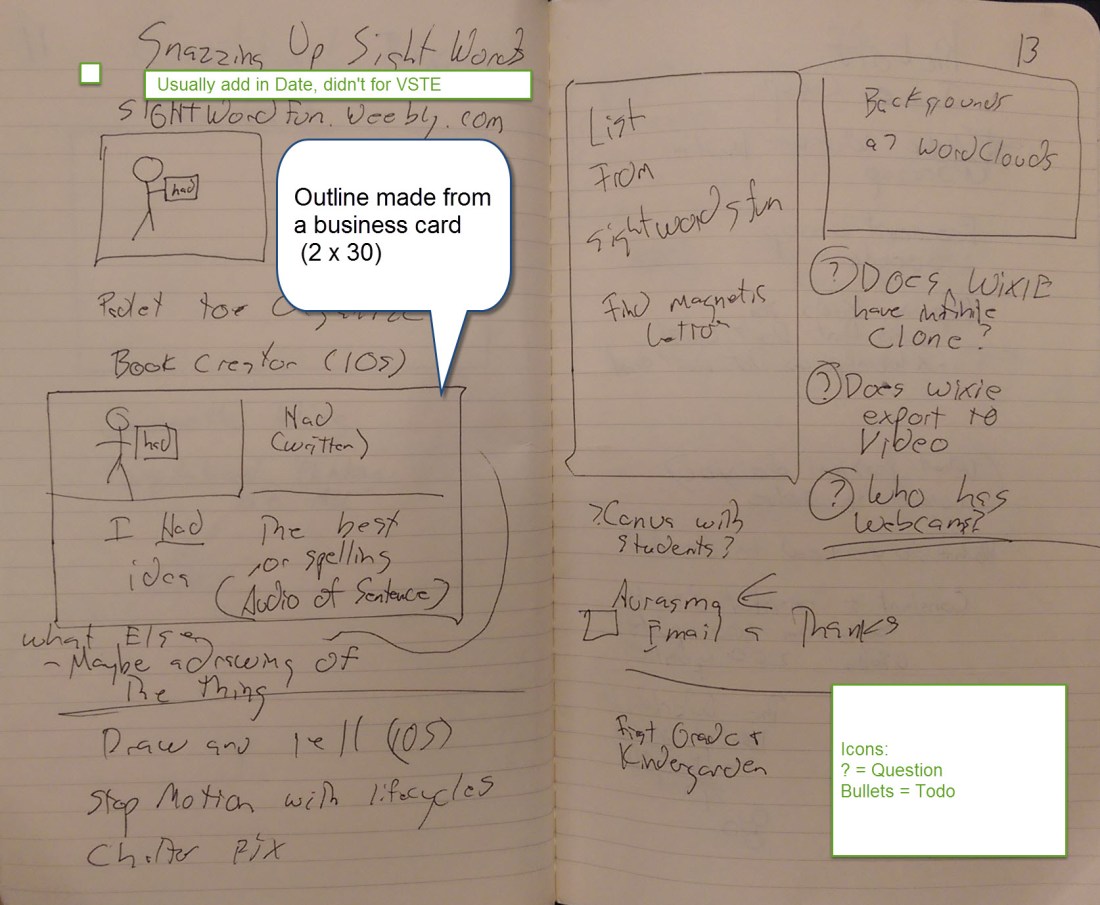 Snazzing Up Sight Words
Usually add in Date, didn't for VSTE
SIGHTWordFun.weebly.com
had
Outline made from
a business card
(2 x 30)
Book Creator (IOS)
had
Had
(written)
I Had
idea
The best
or spelling
(Audio of Sentence)
What Else
- Maybe a drawing of
The thing
Draw and Tell (IOS)
Stop Motion with lifecycles
Chatter Pix
13
List
From
sightwordsfun
Find magnetic
Backgrounds
a? WordClouds
? Does WIXIE
have infinite
Clone?
? Does wixie
export to
Video
? Who has
webcams?
? Canva with
students?
Aurasma ←
Email a Thanks
First Grade +
Kindergarden
Icons:
? = Question
Bullets = Todo